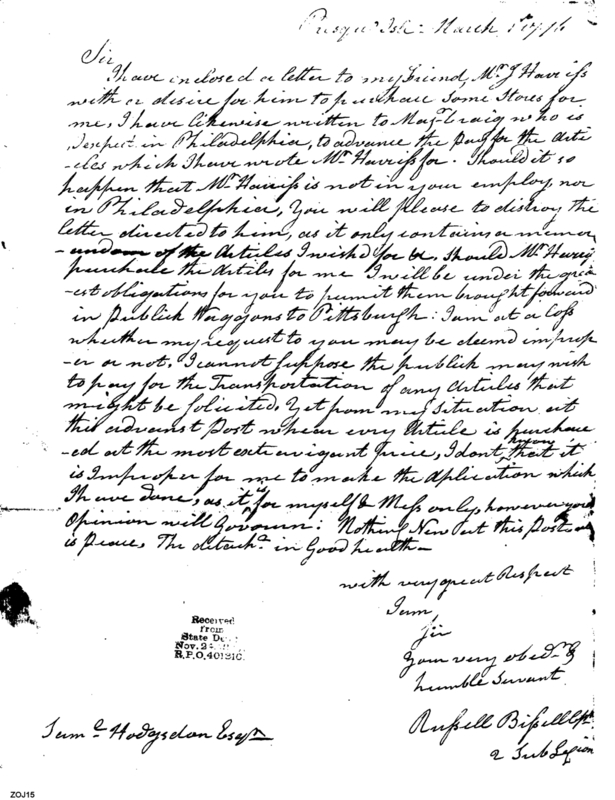 Presqu' Isle March 1796
Sir
I have inclosed a letter to my friend, Mr. J Harriss
with a desire for him to purchase Some Stores for
me, I have likewise written to Majr. Craig who is
I expect in Philadelphia, to advance the pay for the Arti
-cles which I have wrote Mr. Harriss for. Should it so
happen that Mr. Harriss is not in your employ, nor
in Philadelphia, You will please to distroy the
letter directed to him, as it only contains a memor
-andom of the Articles I wish'd for. Should Mr. Harriss
purchase the Articles for me I will be under the great
-est obligations for you to permit them brought forward
in Publick Waggons to Pittsburgh. I am at a loss
whether my request to you may be deemd improp
-er or not. I cannot suppose the publick may wish
to pay for the Transportation of any Articles that
might be solicited, Yet from my situation at
this advanst Post whear evry Article is purchase
-ed at the most extravigant price, I dont know that it
is Improper for me to make the Application which
I have done, as it is for myself & Mess only, however your
Opinion will Govourn: Nothing New at this Post
is Peace, The detacht. in Good health—
with very great Respect
I am,
Sir
Your very obedt. &
humble Servant
Russell Bissell Cpt.
2 Sub Legion
Saml. Hodgsdon Esqr.
Received
from
State De
Nov. 2
R.P.O. 401310.
ZOJ15